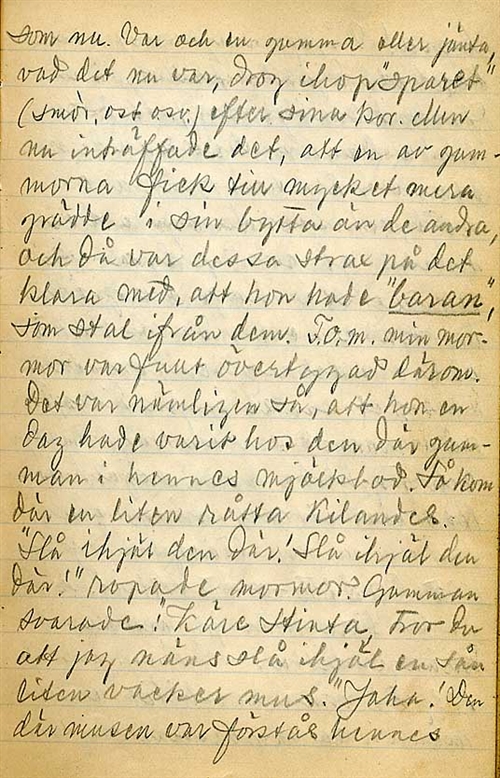 som nu. Var och en gumma eller jänta,
vad det nu var, drog ihop "sparet"
(smör, ost osv.) efter sina kor. Men
nu inträffade det, att en av gum-
morna fick till mycket mera
grädde i sin bytta än de andra,
och då var dessa strax på det
klara med, att hon hade "baran",
som stal ifrån dem. T.o.m. min mor-
mor var fullt övertygad därom.
Det var nämligen så, att hon en
dag hade varit hos den där gum-
man i hennes mjöckbod. Så kom
där en liten råtta kilandes.
"Slå ihjäl den där! Slå ihjäl den
där!" ropade mormor. Gumman
svarade: "Käre Stinta, tror du
att jag näns slå ihjäl en sån
liten vacker mus." Jaha! Den
där musen var förstås hennes